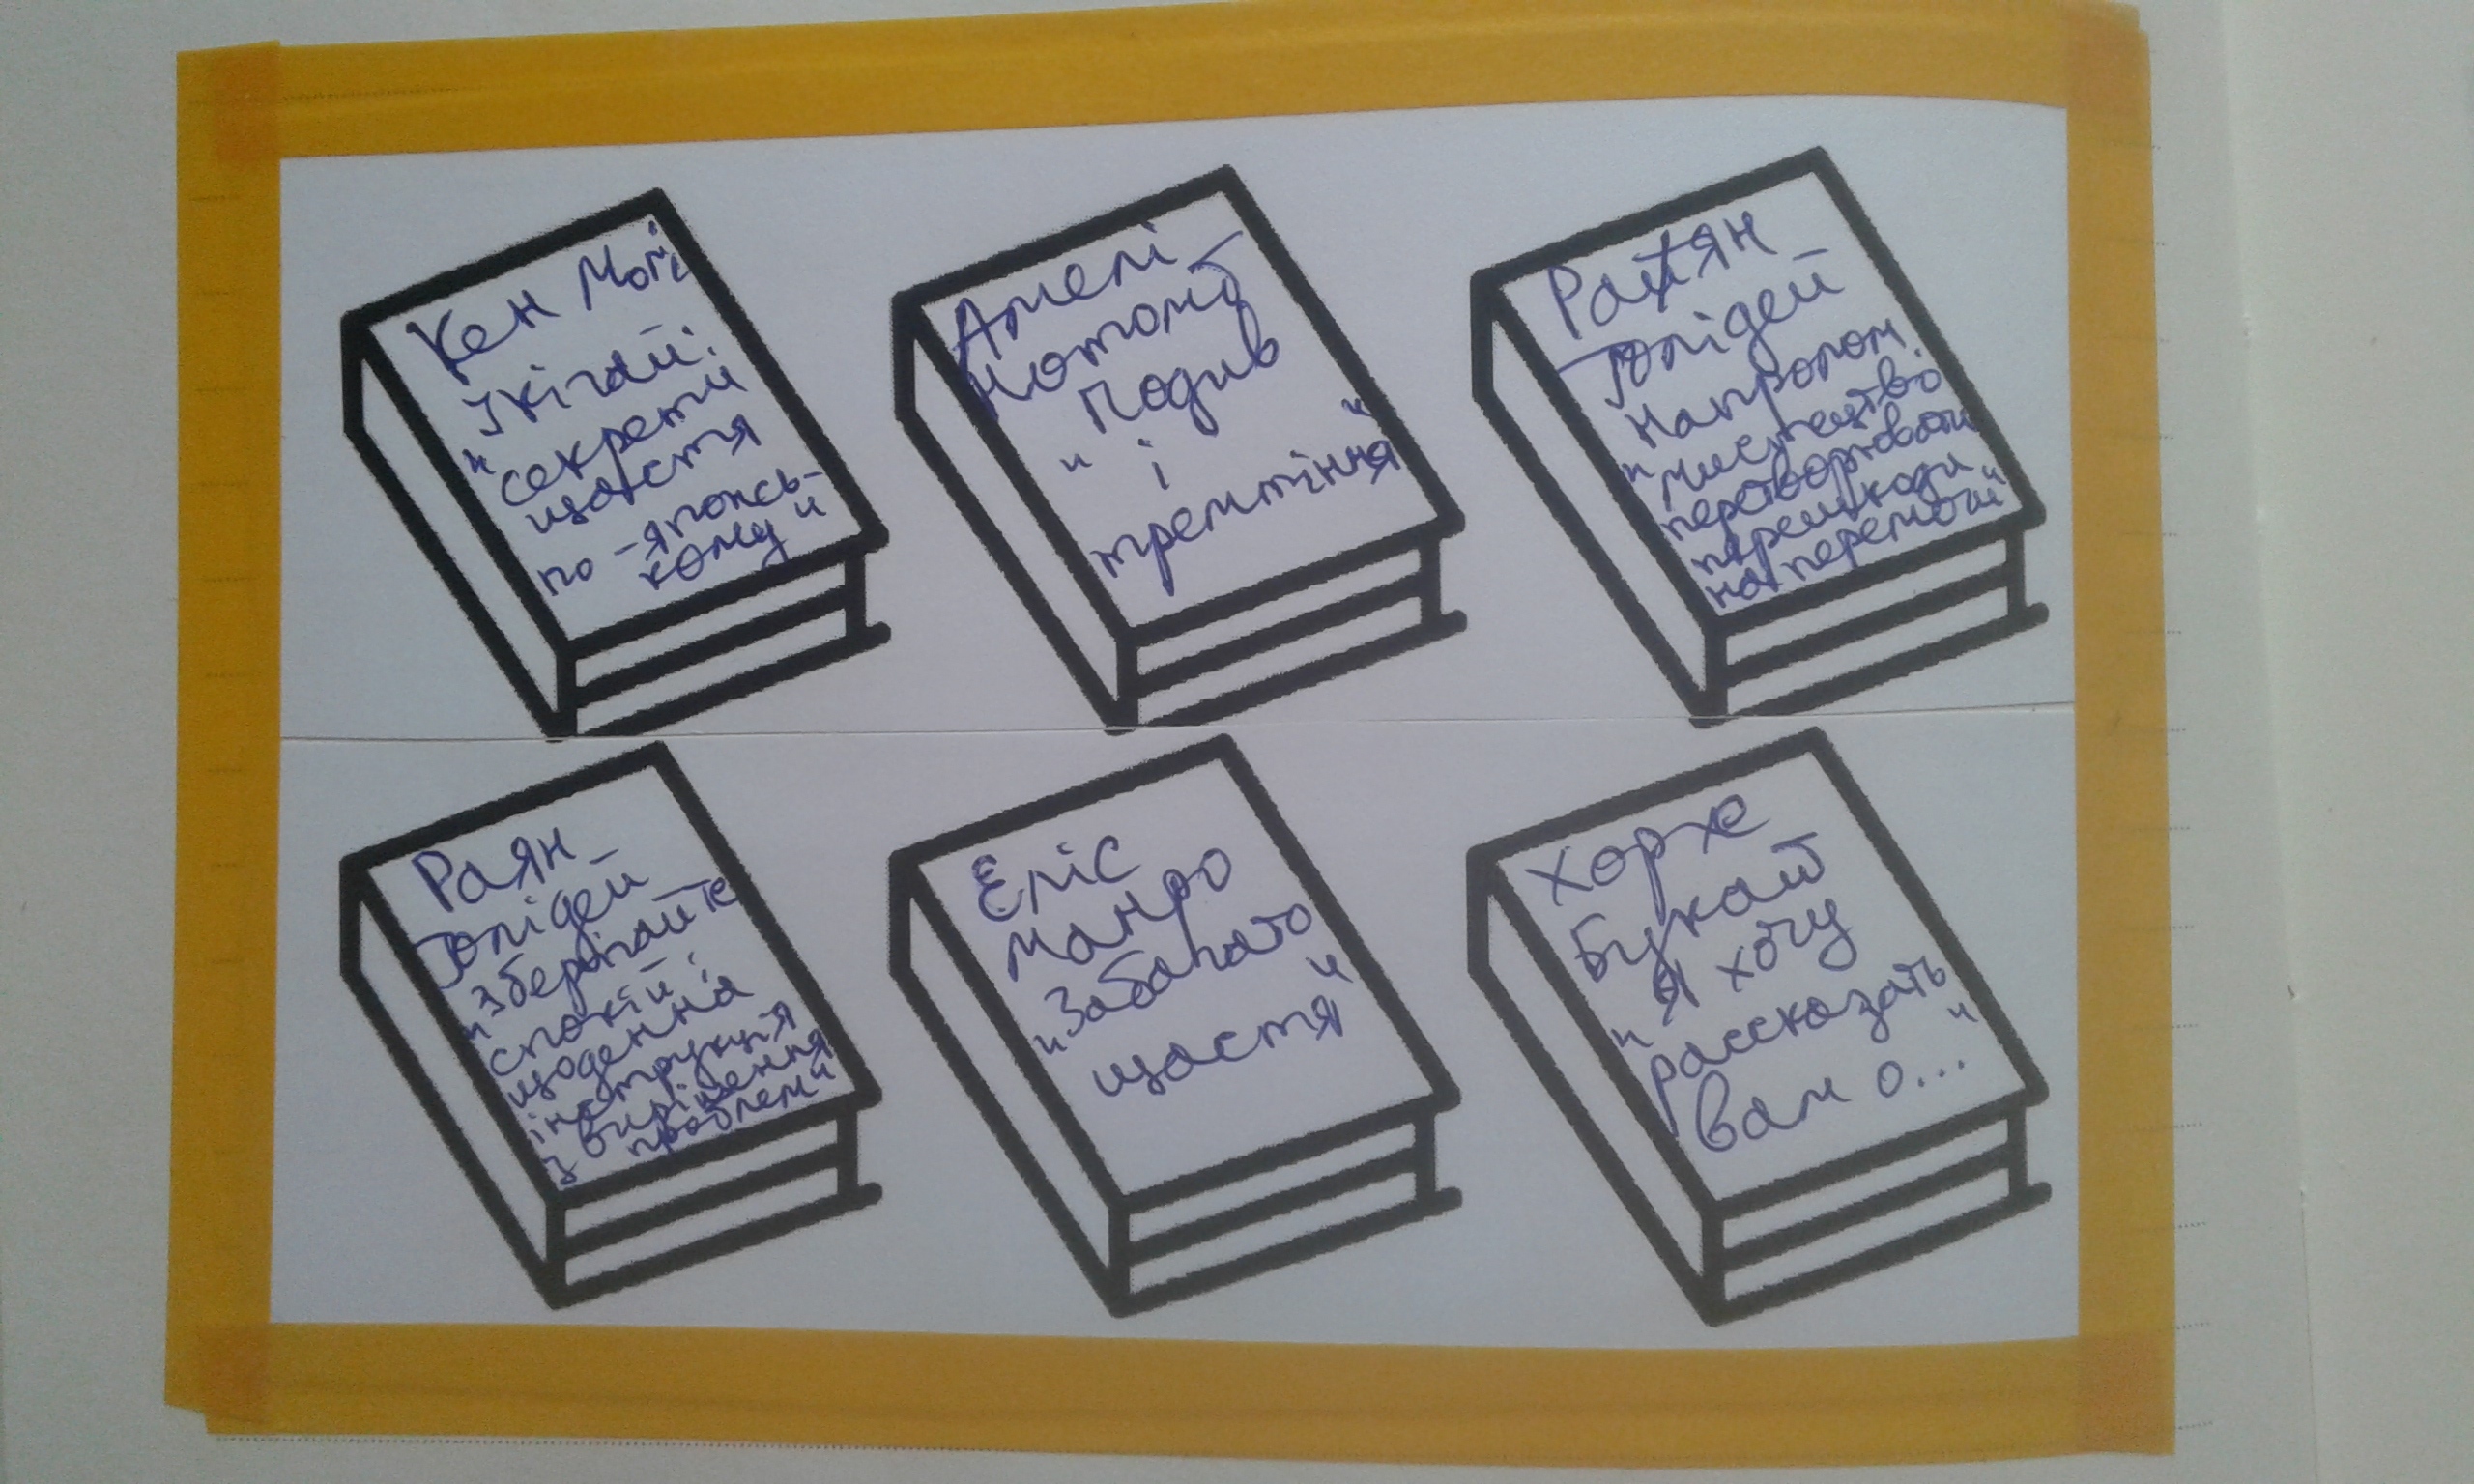 Кен Моґі
Ікігай:
"секрети
щастя
по-японсь-
кому"
Амелі
Нотомб
"Подив
і
тремтіння"
Раян
Голідей
Напролом:
"мистецтво
перетворювати
перешкоди
на перемоги"
Раян
Голідей
"Зберігайте
спокій:
щоденна
інструкція
з вирішення
проблем"
Еліс
Манро
"Забагато
щастя"
Хорхе
Букай
"Я хочу
рассказать
вам о..."